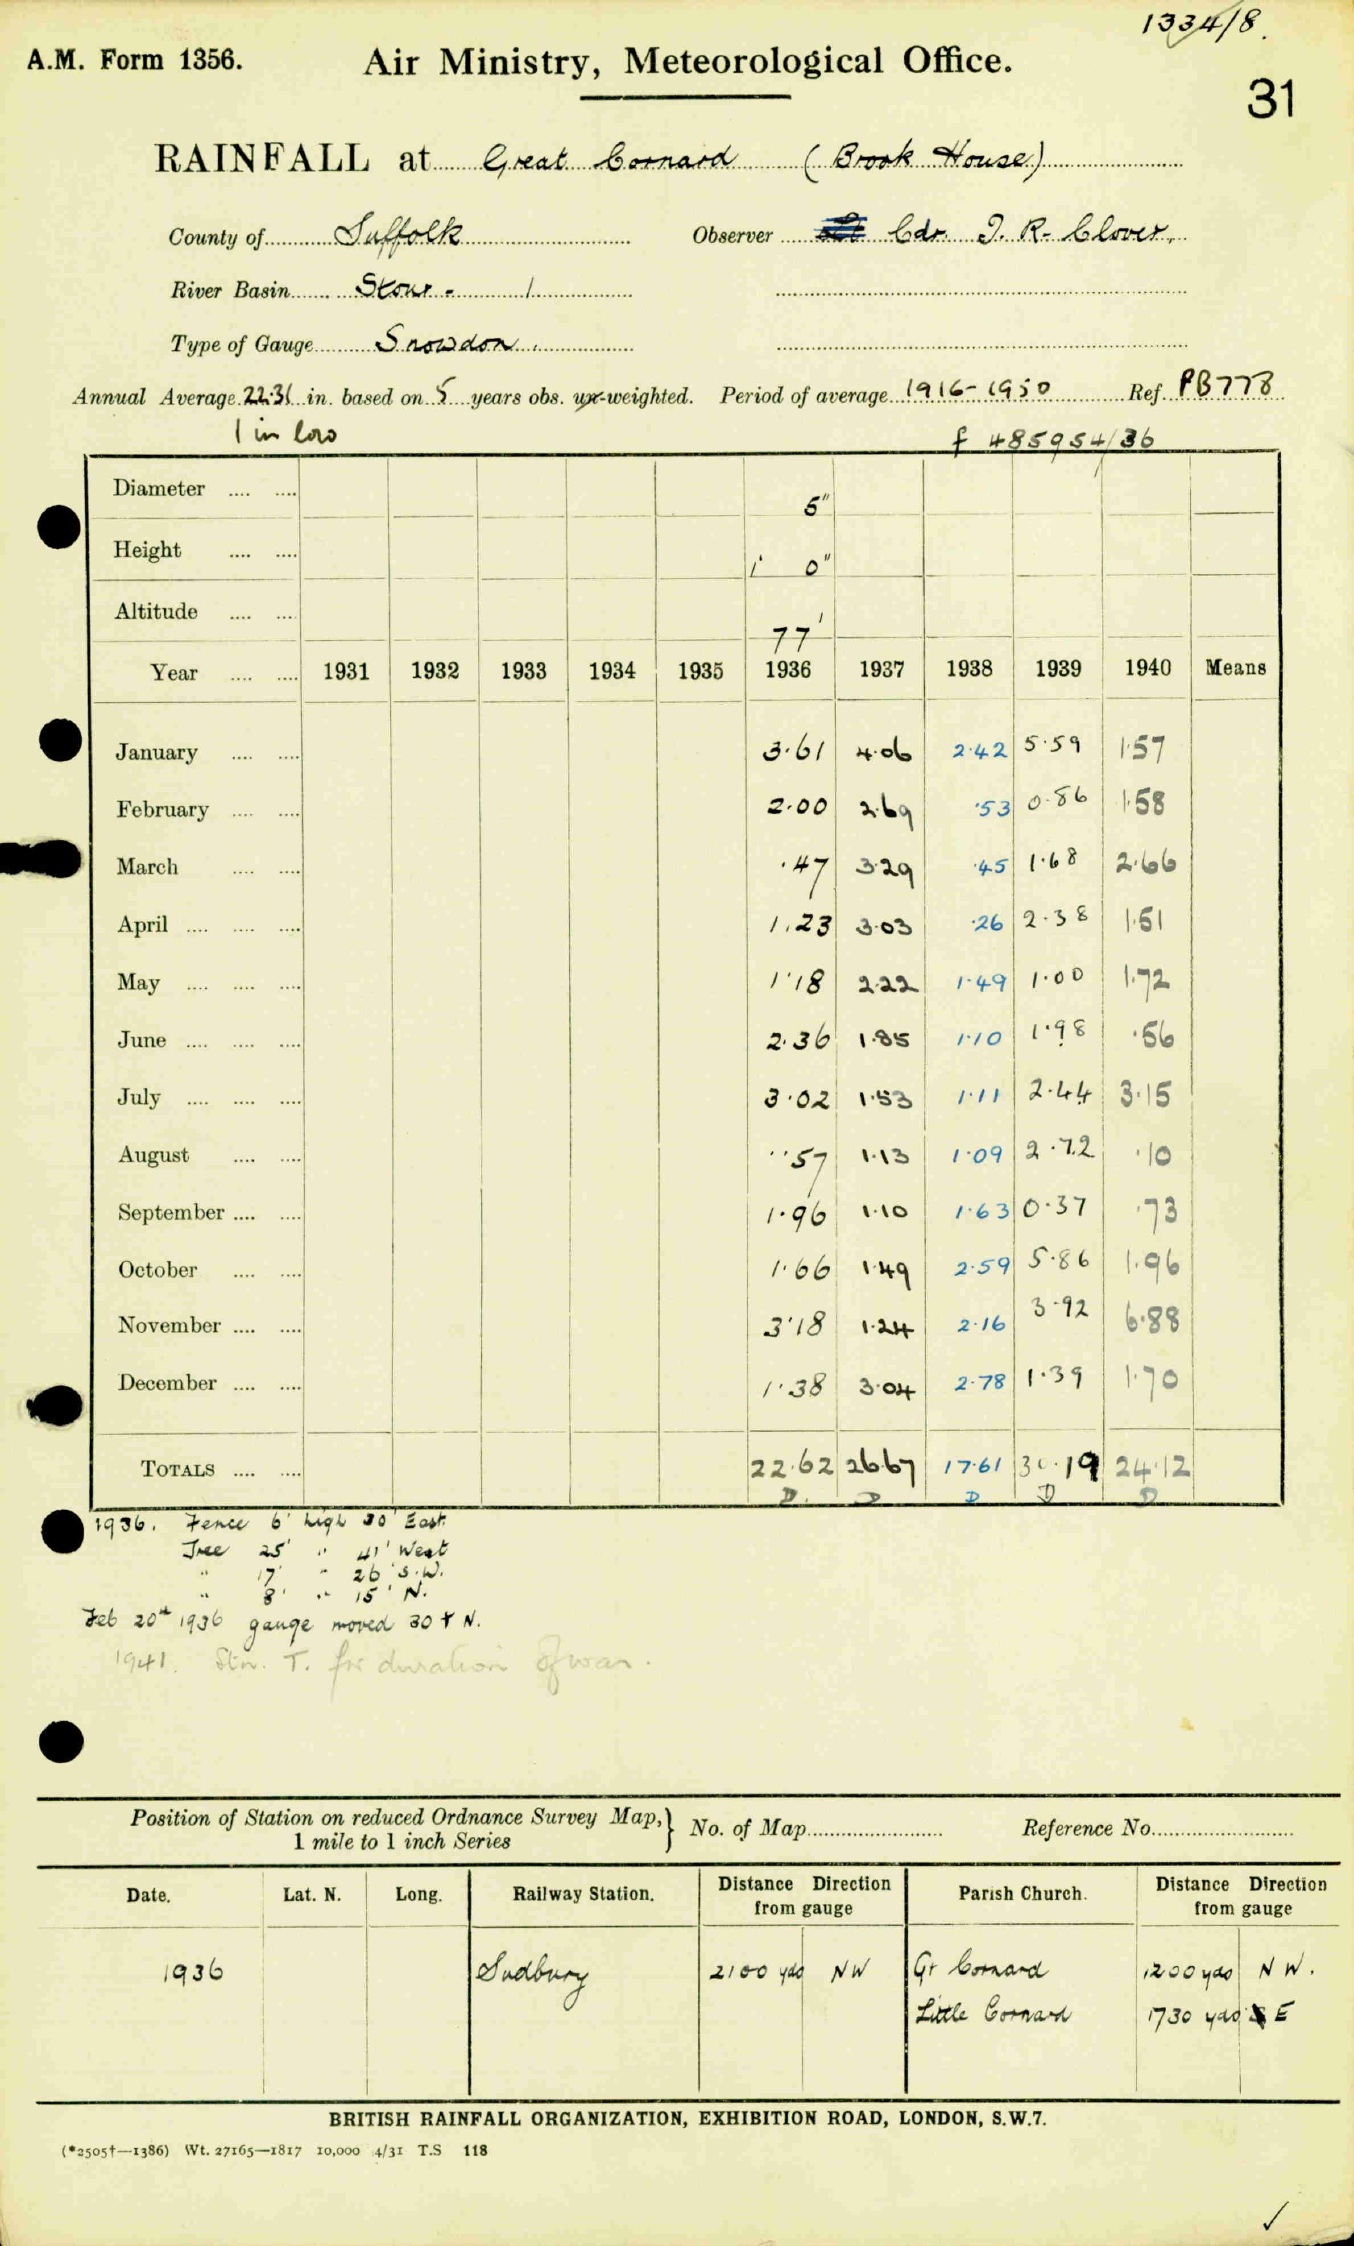 1334/8.
A.M. Form 1356. Air Ministry, Meteorological Office.
31
RAINFALL at Great Cornard (Brook House)
County of Suffolk Observer Cdr. J. R. Clover.
River Basin Stour - 1
Type of Gauge Snowdon.
Annual Average 22.31 in. based on 5 years obs. un-weighted. Period of average 1916-1950 Ref. PB778
1 in low f 485954/36
Diameter .... .... 5"
Height .... .... 1' 0"
Altitude .... .... 77'
Year .... .... 1931 1932 1933 1934 1935 1936 1937 1938 1939 1940 Means
January .... .... 3.61 4.06 2.42 5.59 1.57
February .... .... 2.00 2.69 .53 0.86 1.58
March .... .... .47 3.29 .45 1.68 2.66
April .... .... .... 1.23 3.03 .26 2.38 1.51
May .... .... .... 1.18 2.22 1.49 1.00 1.72
June .... .... .... 2.36 1.85 1.10 1.98 .56
July .... .... .... 3.02 1.53 1.11 2.44 3.15
August .... .... .57 1.13 1.09 2.72 .10
September .... .... 1.96 1.10 1.63 0.37 .73
October .... .... 1.66 1.49 2.59 5.86 1.96
November .... .... 3.18 1.24 2.16 3.92 6.88
December .... .... 1.38 3.04 2.78 1.39 1.70
TOTALS .... .... 22.62 26.67 17.61 30.19 24.12
D. D D D D
1936. Fence 6' high 30' East
Tree 25' " 41' West
" 17' " 26' S.W.
" 8' " 15' N.
Feb 20th 1936 gauge moved 30 ft N.
1941. Stn. T. for duration of war.
Position of Station on reduced Ordnance Survey Map, } No. of Map Reference No.
1 mile to 1 inch Series
Date. Lat. N. Long. Railway Station. Distance Direction from gauge Parish Church. Distance Direction from gauge
1936 Sudbury 2100 yds NW Gt Cornard 1200 yds N W.
Little Cornard 1730 yds E
BRITISH RAINFALL ORGANIZATION, EXHIBITION ROAD, LONDON, S.W.7.
(*2505†—1386) Wt. 27165—1817 10,000 4/31 T.S 118